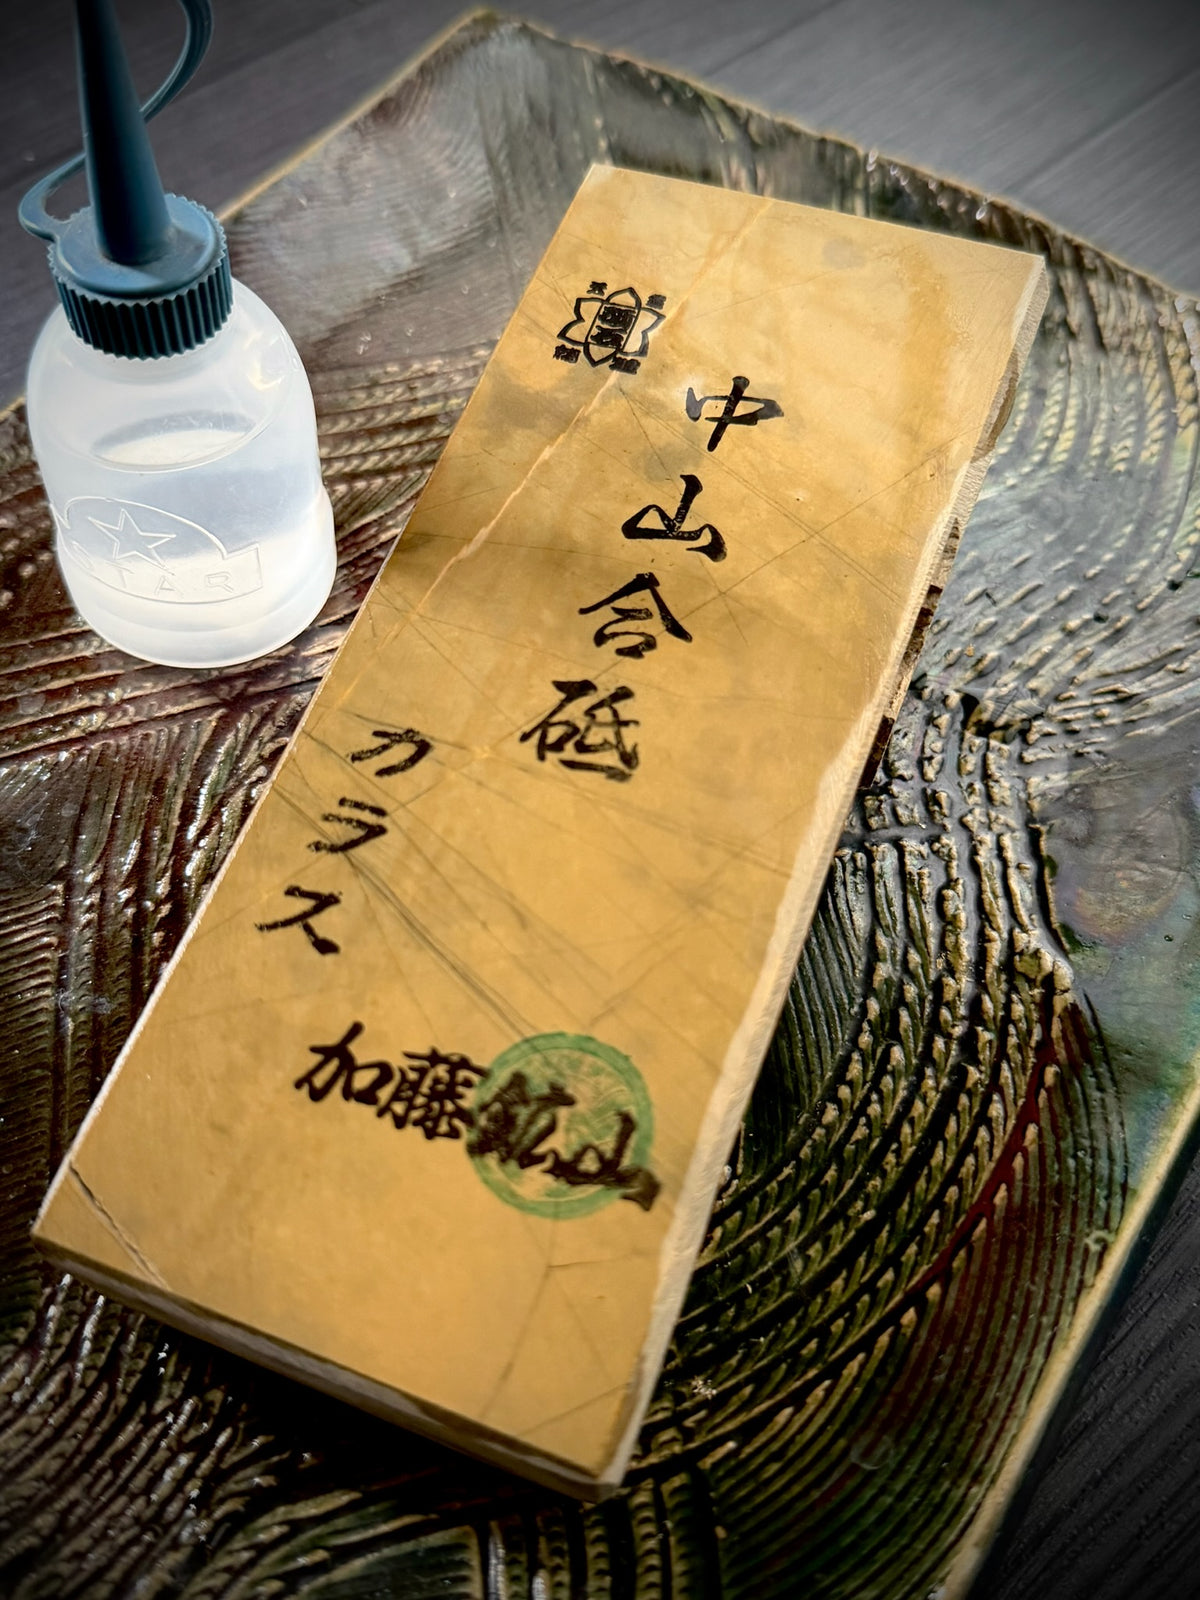 中山合砥
カラス
加藤鉱山
STAR